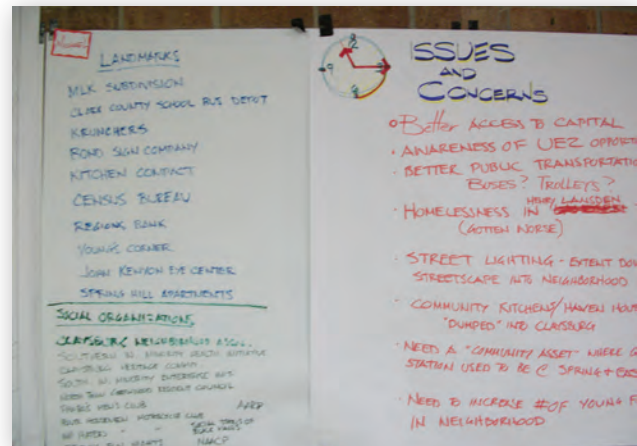 LANDMARKS
MLK SUBDIVISION
CLARK COUNTY SCHOOL BUS DEPOT
KRUNCHERS
BOND SIGN COMPANY
KITCHEN COMPACT
CENSUS BUREAU
REGIONS BANK
YOUNG'S CORNER
JOHN KENYON EYE CENTER
SPRING HILL APARTMENTS
SOCIAL ORGANIZATIONS
CLAYSBURG NEIGHBORHOOD ASSOC.
SOUTHERN IN. MINORITY HEALTH INITIATIVE
CLAYSBURG HERITAGE
SOUTH. IN. MINORITY ENTERPRISE
RESIDENT COUNCIL
MEN'S CLUB
MOTORCYCLE CLUB
AARP
NAACP
12
9
3
6
ISSUES
AND
CONCERNS
Better ACCESS TO CAPITAL
AWARENESS OF UEZ OPPORT
BETTER PUBLIC TRANSPORTATIO
BUSES? TROLLEYS?
HOMELESSNESS IN HENRY LANSDEN
(GOTTEN WORSE)
STREET LIGHTING - EXTENT DOW
STREETSCAPE INTO NEIGHBORHOOD
COMMUNITY KITCHEN/HAVEN HOU
"DUMPED" INTO CLAYSBURG
NEED A "COMMUNITY ASSET" WHERE G
STATION USED TO BE @ SPRING + EAS
NEED TO INCREASE # OF YOUNG F
IN NEIGHBORHOOD